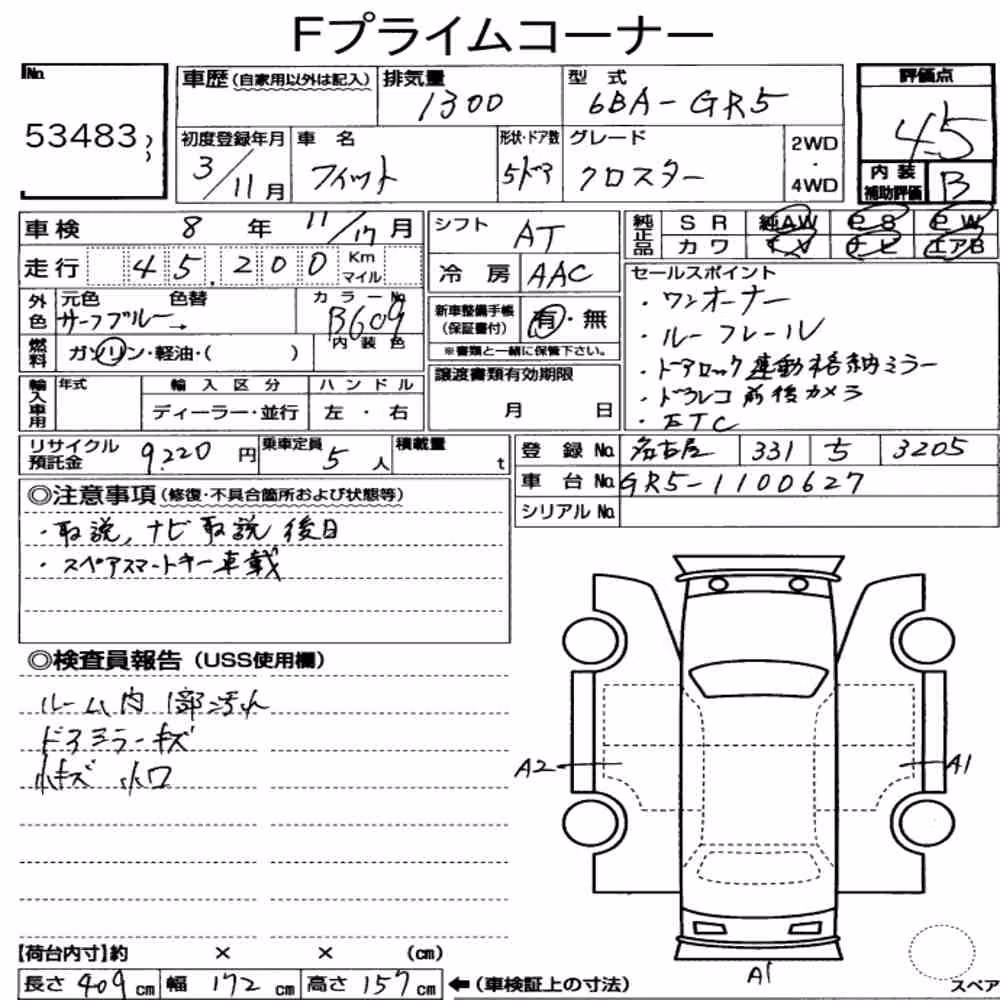 Fプライムコーナー
No. 53483
車歴 (自家用以外は記入) 排気量 1300 型式 6BA-GR5 評価点 4.5
初度登録年月 3/11月 車名 フィット 形状・ドア数 5ドア グレード クロスター 2WD・4WD 内装補助評価 B
車検 8年 11/17月 シフト AT 純正品 SR 純AW PS PW
カワ TV ナビ エアB
走行 45,200 Km マイル 冷房 AAC
外色 元色 サーフブルー 色替 カラーNo. B609 新車整備手帳 (保証書付) 有・無
※書類と一緒に保管下さい。
燃料 ガソリン・軽油・( ) 内装色
セールスポイント
・ワンオーナー
・ルーフレール
・ドアロック連動格納ミラー
・ドラレコ 前後カメラ
・ETC
輸入車用 年式 輸入区分 ディーラー・並行 ハンドル 左・右 譲渡書類有効期限 月 日
リサイクル預託金 9,220円 乗車定員 5人 積載量 t
登録No. 名古屋 331 ち 3205
車台No. GR5-1100627
シリアルNo.
◎注意事項 (修復・不具合箇所および状態等)
・取説, ナビ取説 後日
・スペアスマートキー車載
◎検査員報告 (USS使用欄)
ルーム内 1部汚れ
ドアミラーキズ
小キズ 小凹
A2
A1
A1
【荷台内寸】約 × × (cm)
長さ 409 cm 幅 172 cm 高さ 157 cm ←(車検証上の寸法)
スペア